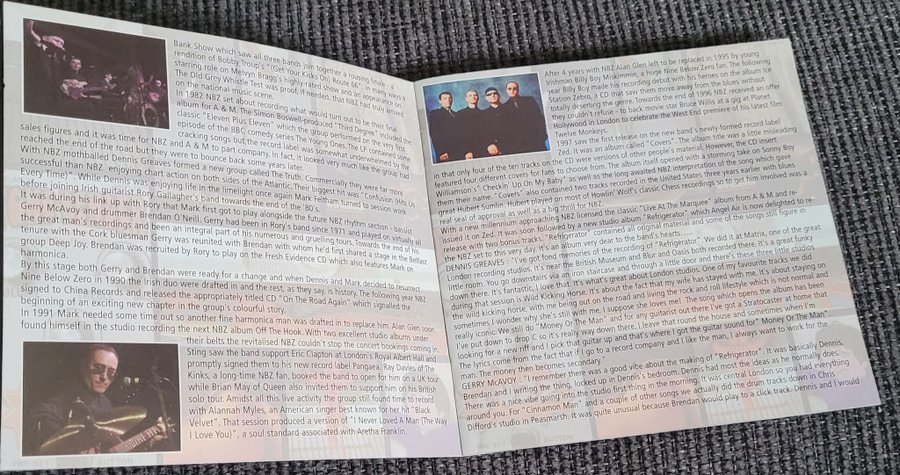 Bank Show which saw all three bands join together a rousing finale - a
rendition of Bobby Troup's "(Get Your Kicks On) Route 66". In many ways a
starring role on Melvyn Bragg's highly-rated show and an appearance on
The Old Grey Whistle Test was proof, if needed, that NBZ had truly arrived
on the national music scene.
In 1982 NBZ set about recording what would turn out to be their final
album for A & M. The Simon Boswell-produced "Third Degree" included the
classic "Eleven Plus Eleven" which the group performed on the very first
episode of the BBC comedy series The Young Ones. The LP contained some
cracking songs but the record label was somewhat underwhelmed by the
sales figures and it was time for NBZ and A & M to part company. In fact, it looked very much like the group had
reached the end of the road but they were to bounce back some years later.
With NBZ mothballed Dennis Greaves formed a new group called The Truth. Commercially they were far more
successful than NBZ enjoying chart action on both sides of the Atlantic. Their biggest hit was "Confusion (Hits Us
Every Time)". While Dennis was enjoying life in the limelight once again Mark Feltham turned to session work
before joining Irish guitarist Rory Gallagher's band towards the end of the 80's.
It was during his link up with Rory that Mark first got to play alongside the future NBZ rhythm section - bassist
Gerry McAvoy and drummer Brendan O'Neill. Gerry had been in Rory's band since 1971 and played on virtually all
the great man's recordings and been an integral part of his numerous and gruelling tours. Towards the end of his
tenure with the Cork bluesman Gerry was reunited with Brendan with whom he'd first shared a stage in the Belfast
group Deep Joy. Brendan was recruited by Rory to play on the Fresh Evidence CD which also features Mark on
harmonica.
By this stage both Gerry and Brendan were ready for a change and when Dennis and Mark decided to resurrect
Nine Below Zero in 1990 the Irish duo were drafted in and the rest, as they say, is history. The following year NBZ
signed to China Records and released the appropriately titled CD "On The Road Again" which signalled the
beginning of an exciting new chapter in the group's colourful story.
In 1991 Mark needed some time out so another fine harmonica man was drafted in to replace him. Alan Glen soon
found himself in the studio recording the next NBZ album Off The Hook. With two excellent studio albums under
their belts the revitalised NBZ couldn't stop the concert bookings coming in.
Sting saw the band support Eric Clapton at London's Royal Albert Hall and
promptly signed them to his new record label Pangaea. Ray Davies of The
Kinks, a long-time NBZ fan, booked the band to open for him on a UK tour
while Brian May of Queen also invited them to support him on his British
solo tour. Amidst all this live activity the group still found time to record
with Alannah Myles, an American singer best known for her hit "Black
Velvet". That session produced a version of "I Never Loved A Man (The Way
I Love You)", a soul standard associated with Aretha Franklin.
After 4 years with NBZ Alan Glen left to be replaced in 1995 by young
Irishman Billy Boy Miskimmin, a huge Nine Below Zero fan. The following
year Billy Boy made his recording debut with his heroes on the album Ice
Station Zebro, a CD that saw them move away from the blues without
totally deserting the genre. Towards the end of 1996 NBZ received an offer
they couldn't refuse - to back movie star Bruce Willis at a gig at Planet
Hollywood in London to celebrate the West End premiere of his latest film
Twelve Monkeys.
1997 saw the first release on the new band's newly-formed record label
Zed. It was an album called "Covers". The album title was a little misleading
in that only four of the ten tracks on the CD were versions of other people's material. However, the CD insert
featured four different covers for fans to choose from. The album itself opened with a storming take on Sonny Boy
Williamson's" Checkin' Up On My Baby" as well as the long awaited NBZ interpretation of the song which gave
them their name. "Covers" also contained two tracks recorded in the United States three years earlier with blues
great Hubert Sumlin. Hubert played on most of Howlin' Wolf's classic Chess recordings so to get him involved was a
real seal of approval as well as a big thrill for NBZ.
With a new millennium approaching NBZ licensed the classic "Live At The Marquee" album from A & M and re-
issued it on Zed. It was soon followed by a new studio album "Refrigerator" which Angel Air is now delighted to re-
release with two bonus tracks. "Refrigerator" contained all original material and some of the songs still figure in
the NBZ set to this very day. It's an album very dear to the band's hearts.....
DENNIS GREAVES : "I've got fond memories of the recording of "Refrigerator". We did it at Matrix, one of the great
London recording studios. It's near the British Museum and Blur and Oasis both recorded there. It's a great funky
little room. You go downstairs via an iron staircase and through a little door and there's these three little studios
down there. It's fantastic, I love that. It's what's great about London studios. One of my favourite tracks we did
during that session is Wild Kicking Horse. It's about the fact that my wife has stayed with me. It's about staying on
the wild kicking horse, with me being out on the road and living the rock and roll lifestyle which is not normal and
sometimes I wonder why she's still with me, I suppose she loves me! The song which opens the album has been
really iconic. We still do "Money Or The Man" and for any guitarist out there I've got a Stratocaster at home that
I've put down to drop C so it's really way down there. I leave that round the house and sometimes when I'm
looking for a new riff and I pick that guitar up and that's where I got the guitar sound for "Money Or The Man".
The lyrics come from the fact that if I go to a record company and I like the man, I always want to work for the
man. The money then becomes secondary."
GERRY McAVOY : "I remember there was a good vibe about the making of "Refrigerator". It was basically Dennis,
Brendan and I writing the thing, locked up in Dennis's bedroom. Dennis had most the ideas as he normally does.
There was a nice vibe going into the studio first thing in the morning. It was central London so you had everything
around you. For "Cinnamon Man" and a couple of other songs we actually did the drum tracks down in Chris
Difford's studio in Peasmarsh. It was quite unusual because Brendan would play to a click track. Dennis and I would